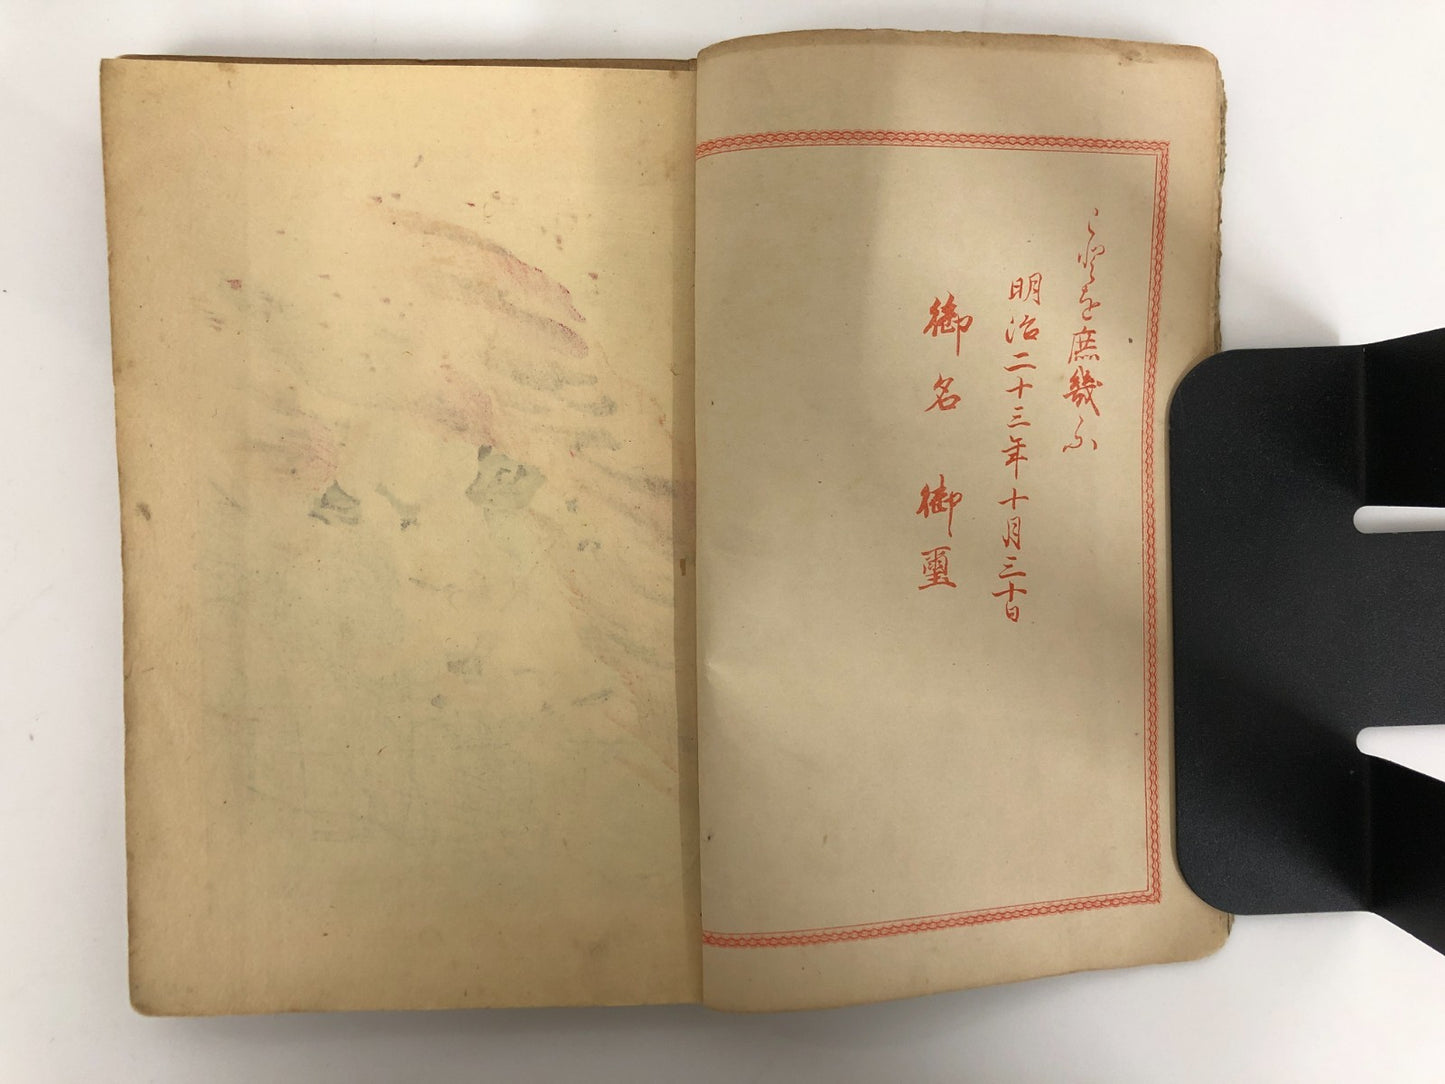 ことを庶幾ふ
明治二十三年十月三十日
御名御璽